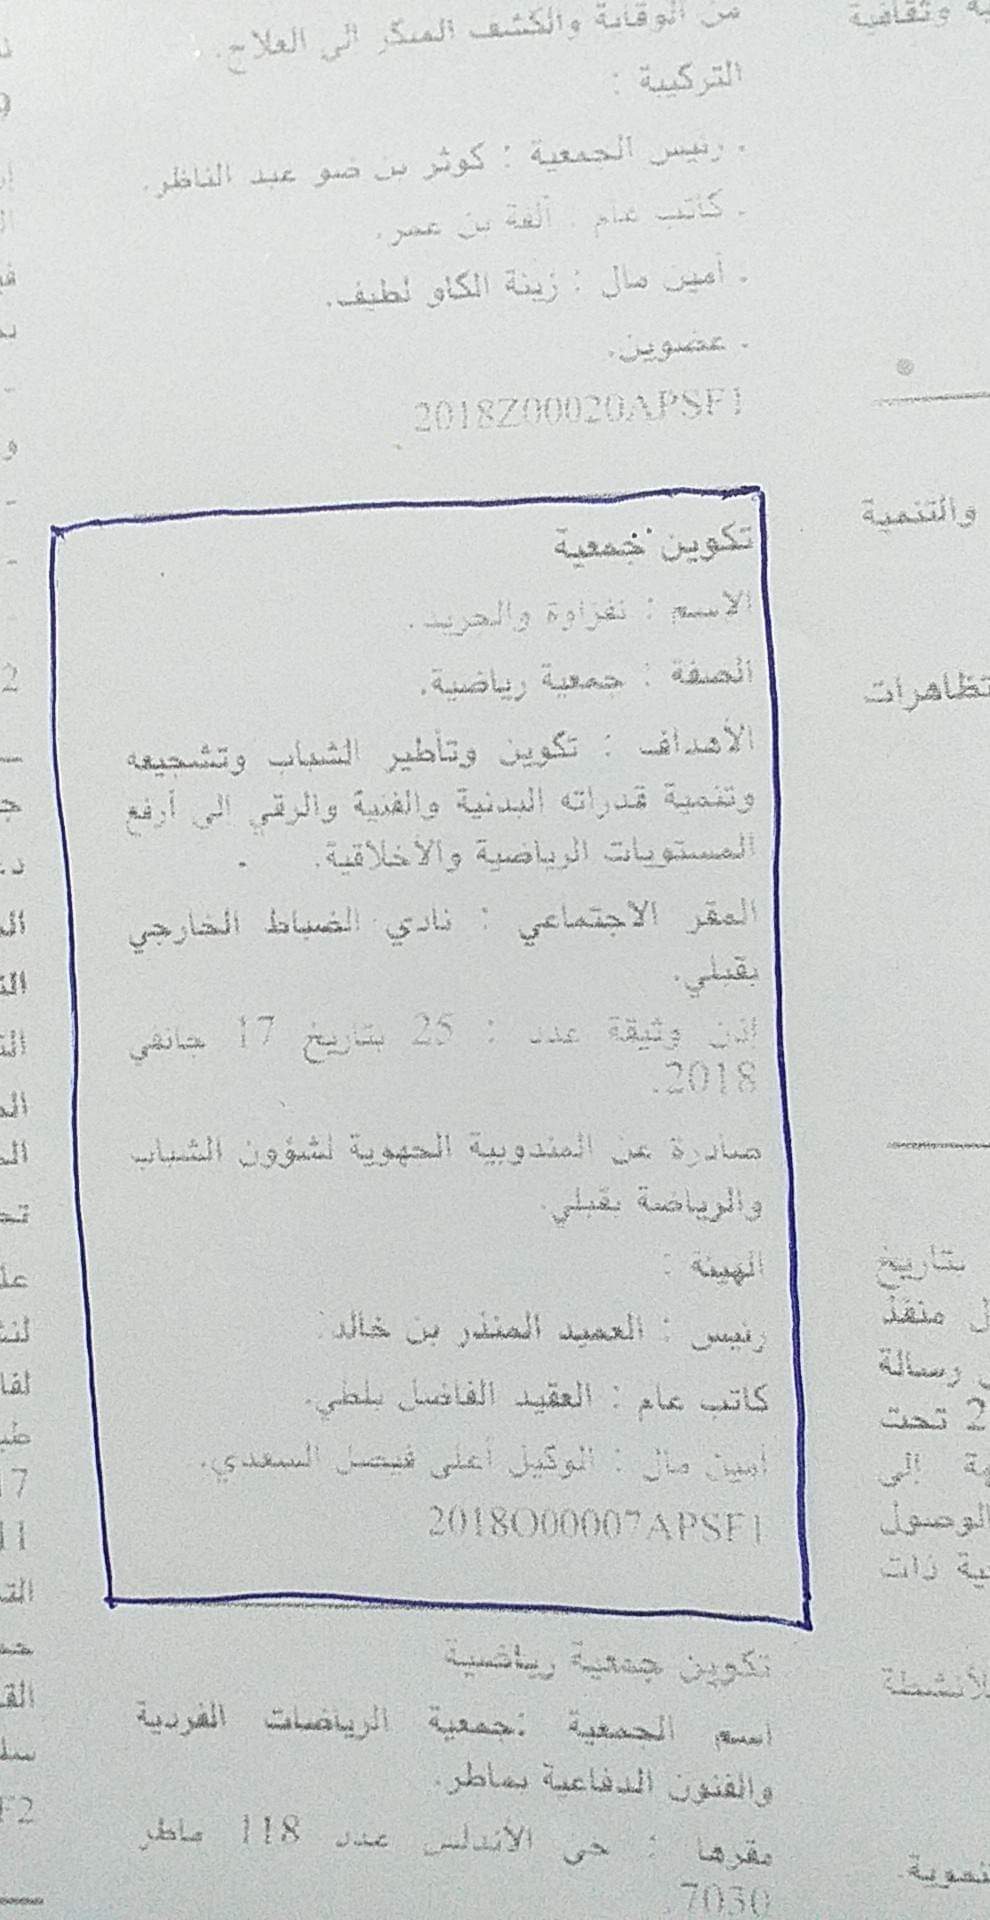 من الوقاية والكشف المبكر الى العلاج.
التركيبة :
- رئيس الجمعية : كوثر بن ضو عبد الناظر.
- كاتب عام : ألفة بن عمر.
- أمين مال : زينة الكاو لطيف.
- عضوين.
2018Z00020APSF1
تكوين جمعية
الاسم : نفزاوة والجريد.
الصفة : جمعية رياضية.
الأهداف : تكوين وتأطير الشباب وتشجيعه
وتنمية قدراته البدنية والفنية والرقي الى أرفع
المستويات الرياضية والأخلاقية.
المقر الاجتماعي : نادي الضباط الخارجي
بقبلي.
إذن وثيقة عدد : 25 بتاريخ 17 جانفي
2018.
صادرة عن المندوبية الجهوية لشؤون الشباب
والرياضة بقبلي.
الهيئة :
رئيس : العميد المنذر بن خالد.
كاتب عام : العقيد الفاضل بلطي.
أمين مال : الوكيل أعلى فيصل السعدي.
2018O00007APSF1
تكوين جمعية رياضية
اسم الجمعية :جمعية الرياضات الفردية
والفنون الدفاعية بماطر.
مقرها : حي الأندلس عدد 118 ماطر
7030.
وثقافية
والتنمية
بتاريخ
رسالة
2 تحت
إلى
الوصول
ذات